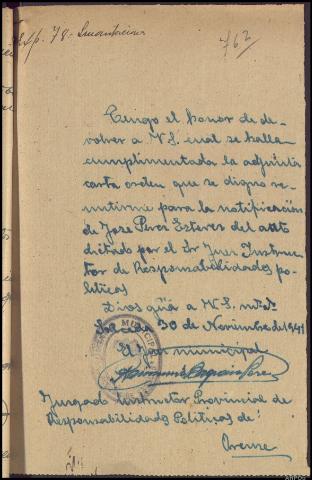 Exp. 78 - Incautaciones
762
Tengo el honor de de-
volver a V.S. cual se halla
cumplimentada la adjunta
carta orden que se digno re-
mitirme para la notificación
de Jose Perez Esteves del auto
dictado por el Sr Juez Instruc-
tor de Responsabilidades po-
liticas
Dios gûa a V.S. muchos
30 de Noviembre de 1941
El Juez municipal
Juzgado Instructor Provincial de
Responsabilidades Politicas de
Orense